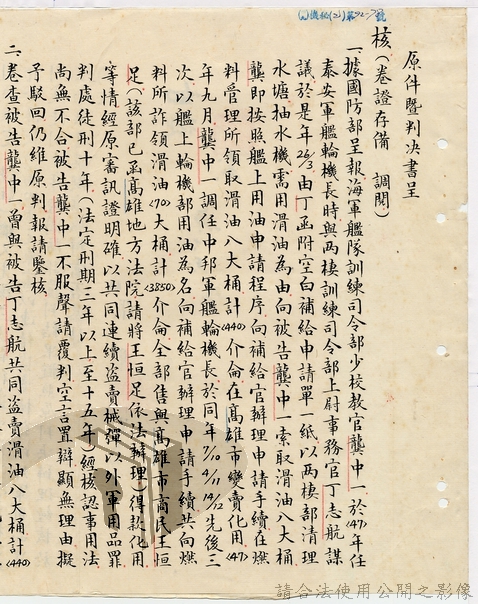 原件暨判决書呈
核（卷證存備　調閱）
一、據國防部呈報海軍艦隊訓練司令部少校教官龔中一於(47)年任
泰安軍艦輪機長時與两棲訓練司令部上尉事務官丁志航謀
議於是年26/3由丁函附空白補給申請單一紙以两棲部清理
水塘抽水機需用滑油為由向被告龔中一索取滑油八大桶
龔即按照艦上用油申請程序向補給官辦理申請手續在燃
料管理所領取滑油八大桶計(440)介侖在髙雄市變賣化用(47)
年九月龔中一調任中邦軍艦輪機長於同年7/10 4/11 14/12先後三
次以艦上輪機部用油為名向補給官辦理申請手續共向燃
料所詐領滑油(70)大桶計(3850)介侖全部售與髙雄市商民王恒
足（該部已函髙雄地方法院請將王恒足依法辦理）得款化用
等情經原審訊證明確以共同連續盜賣械彈以外軍用品罪
判處徒刑十年（法定刑期三年以上至十五年）經核認事用法
尚無不合被告龔中一不服聲請覆判空言置辯顯無理由擬
予駁回仍維原判報請鑒核
二、卷查被告龔中一曾與被告丁志航共同盜賣滑油八大桶計(440)
請合法使用公開之影像